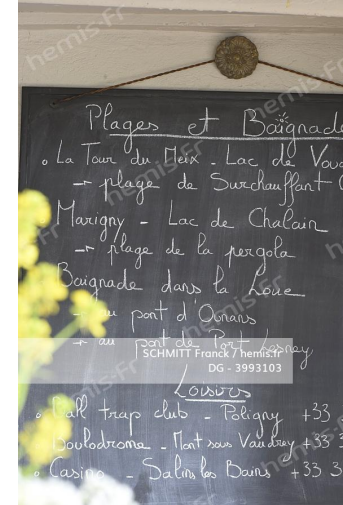 Plages et Baignade
. La Tour du Meix - Lac de Vou
→ plage de Surchauffant (
Marigny - Lac de Chalain
→ plage de la pergola
Baignade dans la Loue
→ au pont d'Ounans
→ au pont de Port Lesney
SCHMITT Franck / hemis.fr
DG - 3993103
Loisirs
. Ball trap club - Poligny +33
. Boulodrome - Mont sous Vaudrey +33 3
. Casino - Salins les Bains +33 3
hemis.fr